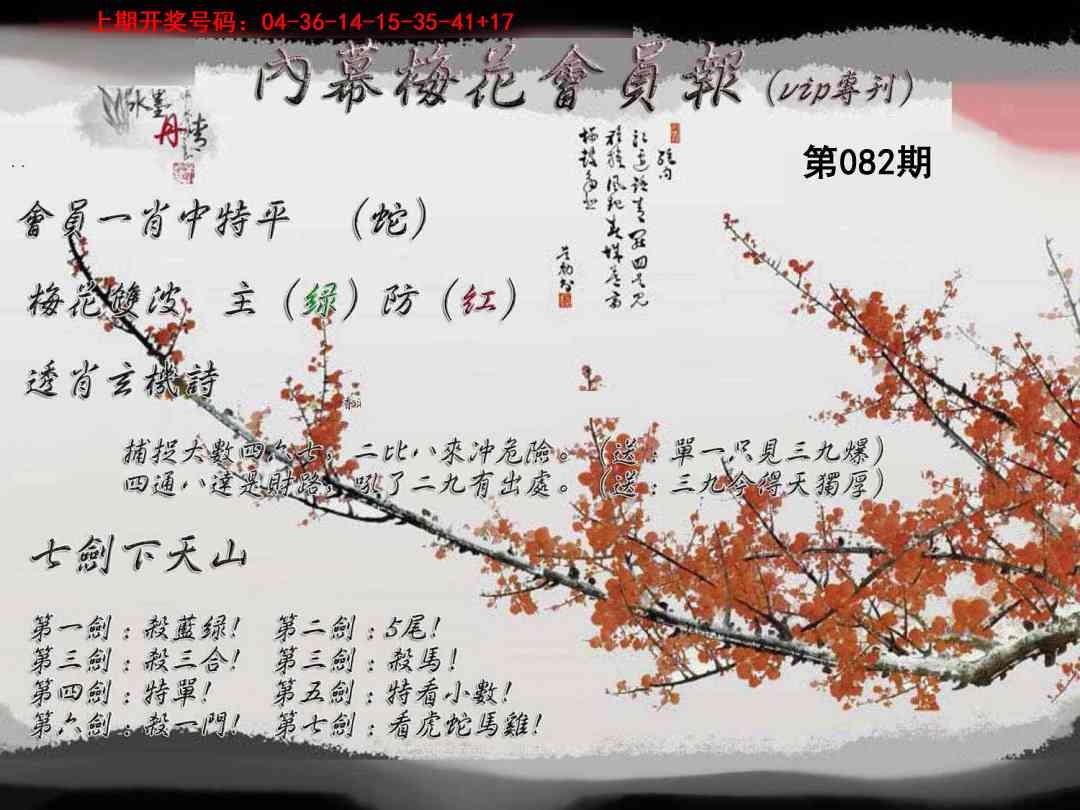 上期开奖号码：04-36-14-15-35-41+17
內幕梅花會員報（vip專刊）
水墨
丹青
第082期
會員一肖中特平 （蛇）
梅花雙波 主（绿）防（红）
透肖玄機詩
捕捉大數四六七，二比八來沖危險。（送：單一只見三九爆）
四通八達是財路，吼了二九有出處。（送：三九今得天獨厚）
七劍下天山
第一劍：殺藍绿！ 第二劍：5尾！
第三劍：殺三合！ 第三劍：殺馬！
第四劍：特單！ 第五劍：特看小數！
第六劍：殺一門！ 第七劍：看虎蛇馬雞！